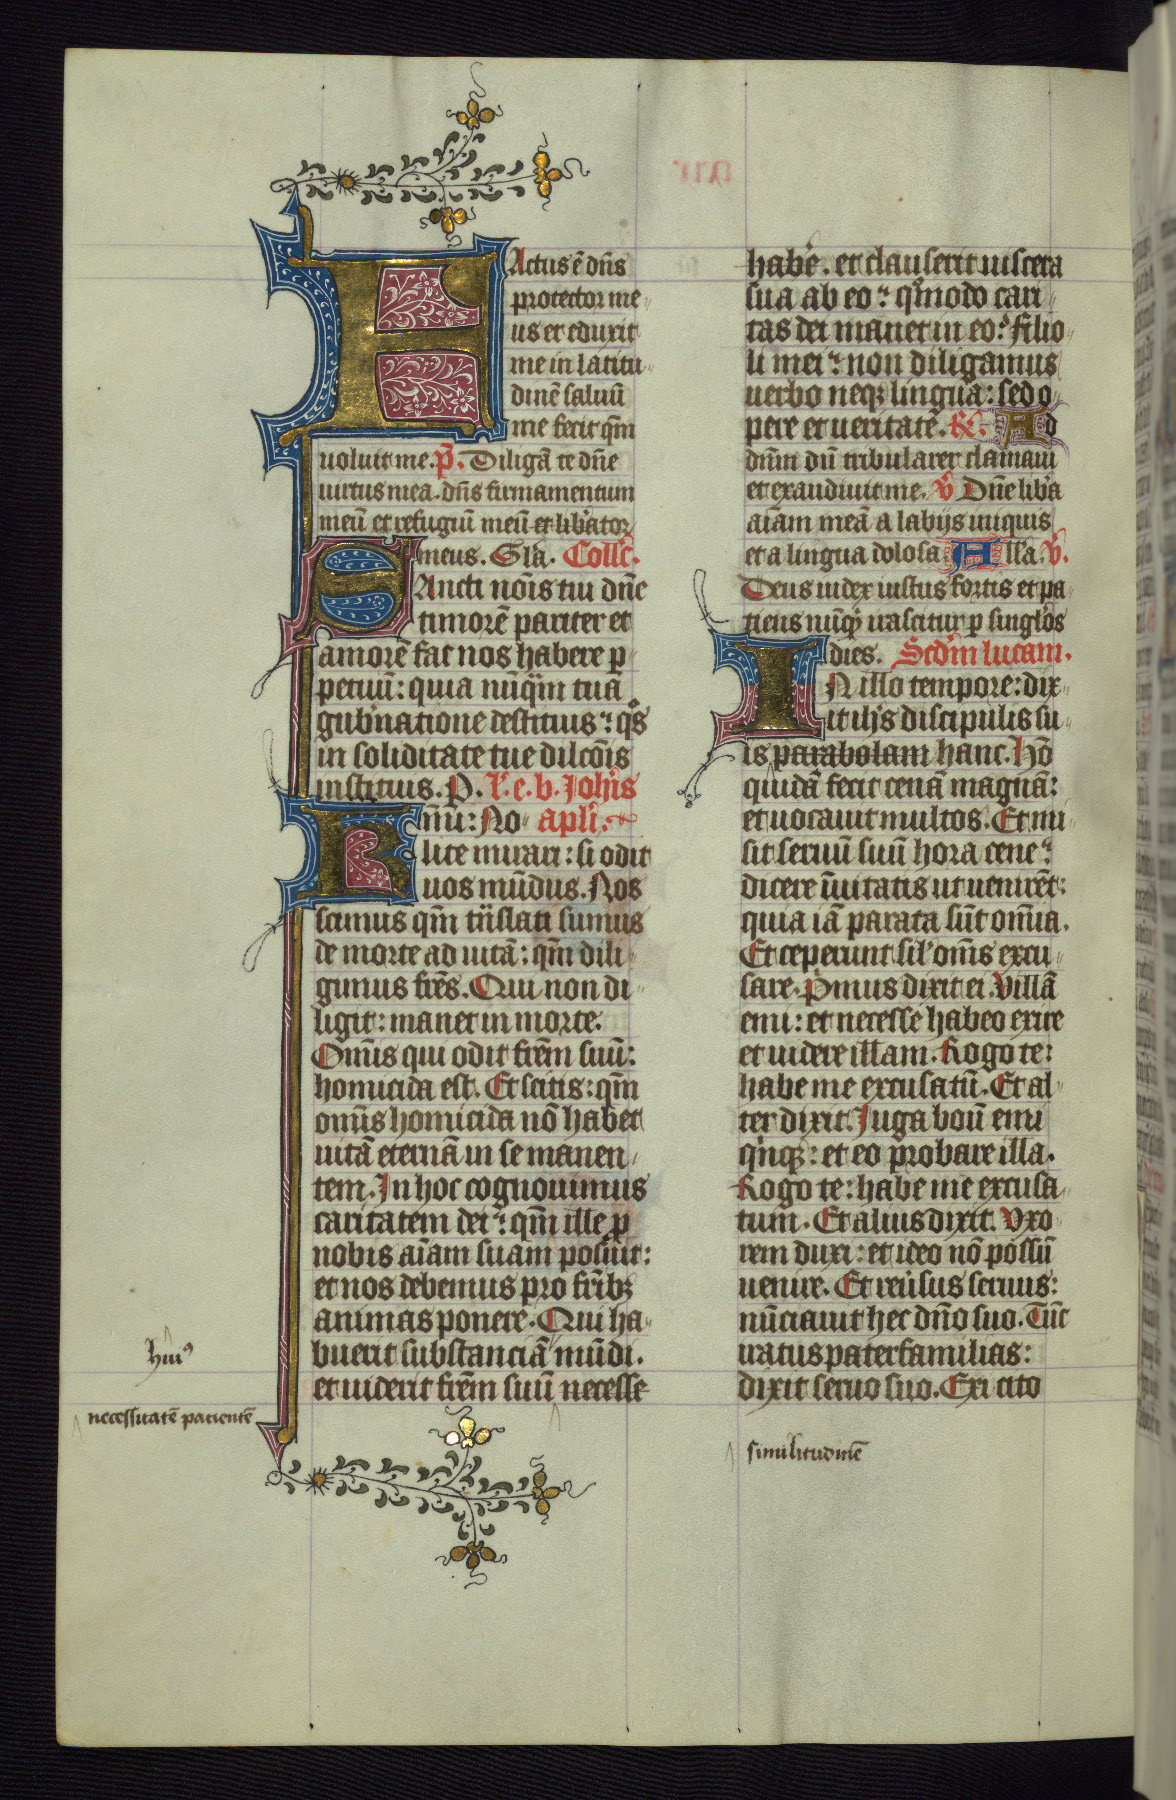 FActus ē dn̄s
protector me
us et eduxit
me in latitu
dinē saluū
me fecit qm̄
uoluit me. P̄. Diligā te dn̄e
uirtus mea. dn̄s firmamentum
meū et refugiū meū et lib̄ator
meus. Gl̄a. Coll̄c.
SAncti nōis tui dn̄e
timorē pariter et
amorē fac nos habere p
petuū: quia nūq̄m tua
gub̄natione destituis: q̄s
in soliditate tue dilcōis
instituis. P. L. e. b. Joh̄is
KRmi: No apl̄i.
lite mirari: si odit
uos mūdus. Nos
scimus qm̄ trāslati sumus
de morte ad uitā: qm̄ dili
gimus fr̄es. Qui non di
ligit: manet in morte.
Omīs qui odit fr̄em suū:
homicida est. Et scitis: qm̄
omīs homicida nō habet
uitā eternā in se manen
tem. In hoc cognouimus
caritatem dei: qm̄ ille p
nobis aīam suam posuit:
et nos debemus pro fr̄ibꝫ
animas ponere. Qui ha
buerit substanciā mūdi.
et uiderit fr̄em suū necesse
hui⁹
necessitatē patientē
habe͛. et clauserit uiscera
sua ab eo: qᵒmodo cari
tas dei manet in eo? filio
li mei: non diligamus
uerbo neqꝫ lingua: sed o
pere et ueritate. R̄. Ad
dn̄m dū tribularer clamaui
et exaudiuit me. V̄ Dn̄e lib̄a
aīam meā a labijs iniquis
et a lingua dolosa. All̄a. V̄.
Deus iudex iustus fortis et pa
tiens nūqͥ irascitur p singl̄os
dies. Scd̄m lucam.
IN illo tempore: dix
it ih̄s discipulis su
is parabolam hanc. Hō
quidā fecit cenā magnā:
et uocauit multos. Et mi
sit seruū suū hora cene:
dicere īuitatis ut uenirēt:
quia iā parata sūt om̄ia.
Et ceperunt sil̄ om̄s excu
sare. Pͥmus dixit ei. Villā
emi: et necesse habeo exire
et uidere illam. Rogo te:
habe me excusatū. Et al
ter dixit. Iuga boū emi
qͥnqꝫ: et eo probare illa.
Rogo te: habe me excusa
tum. Et alius dixit. Vxo
rem duxi: et ideo nō possū
uenire. Et reu͛sus seruus:
nūciauit hec dn̄o suo. Tūc
iratus paterfamilias:
dixit seruo suo. Exi cito
similitudinē